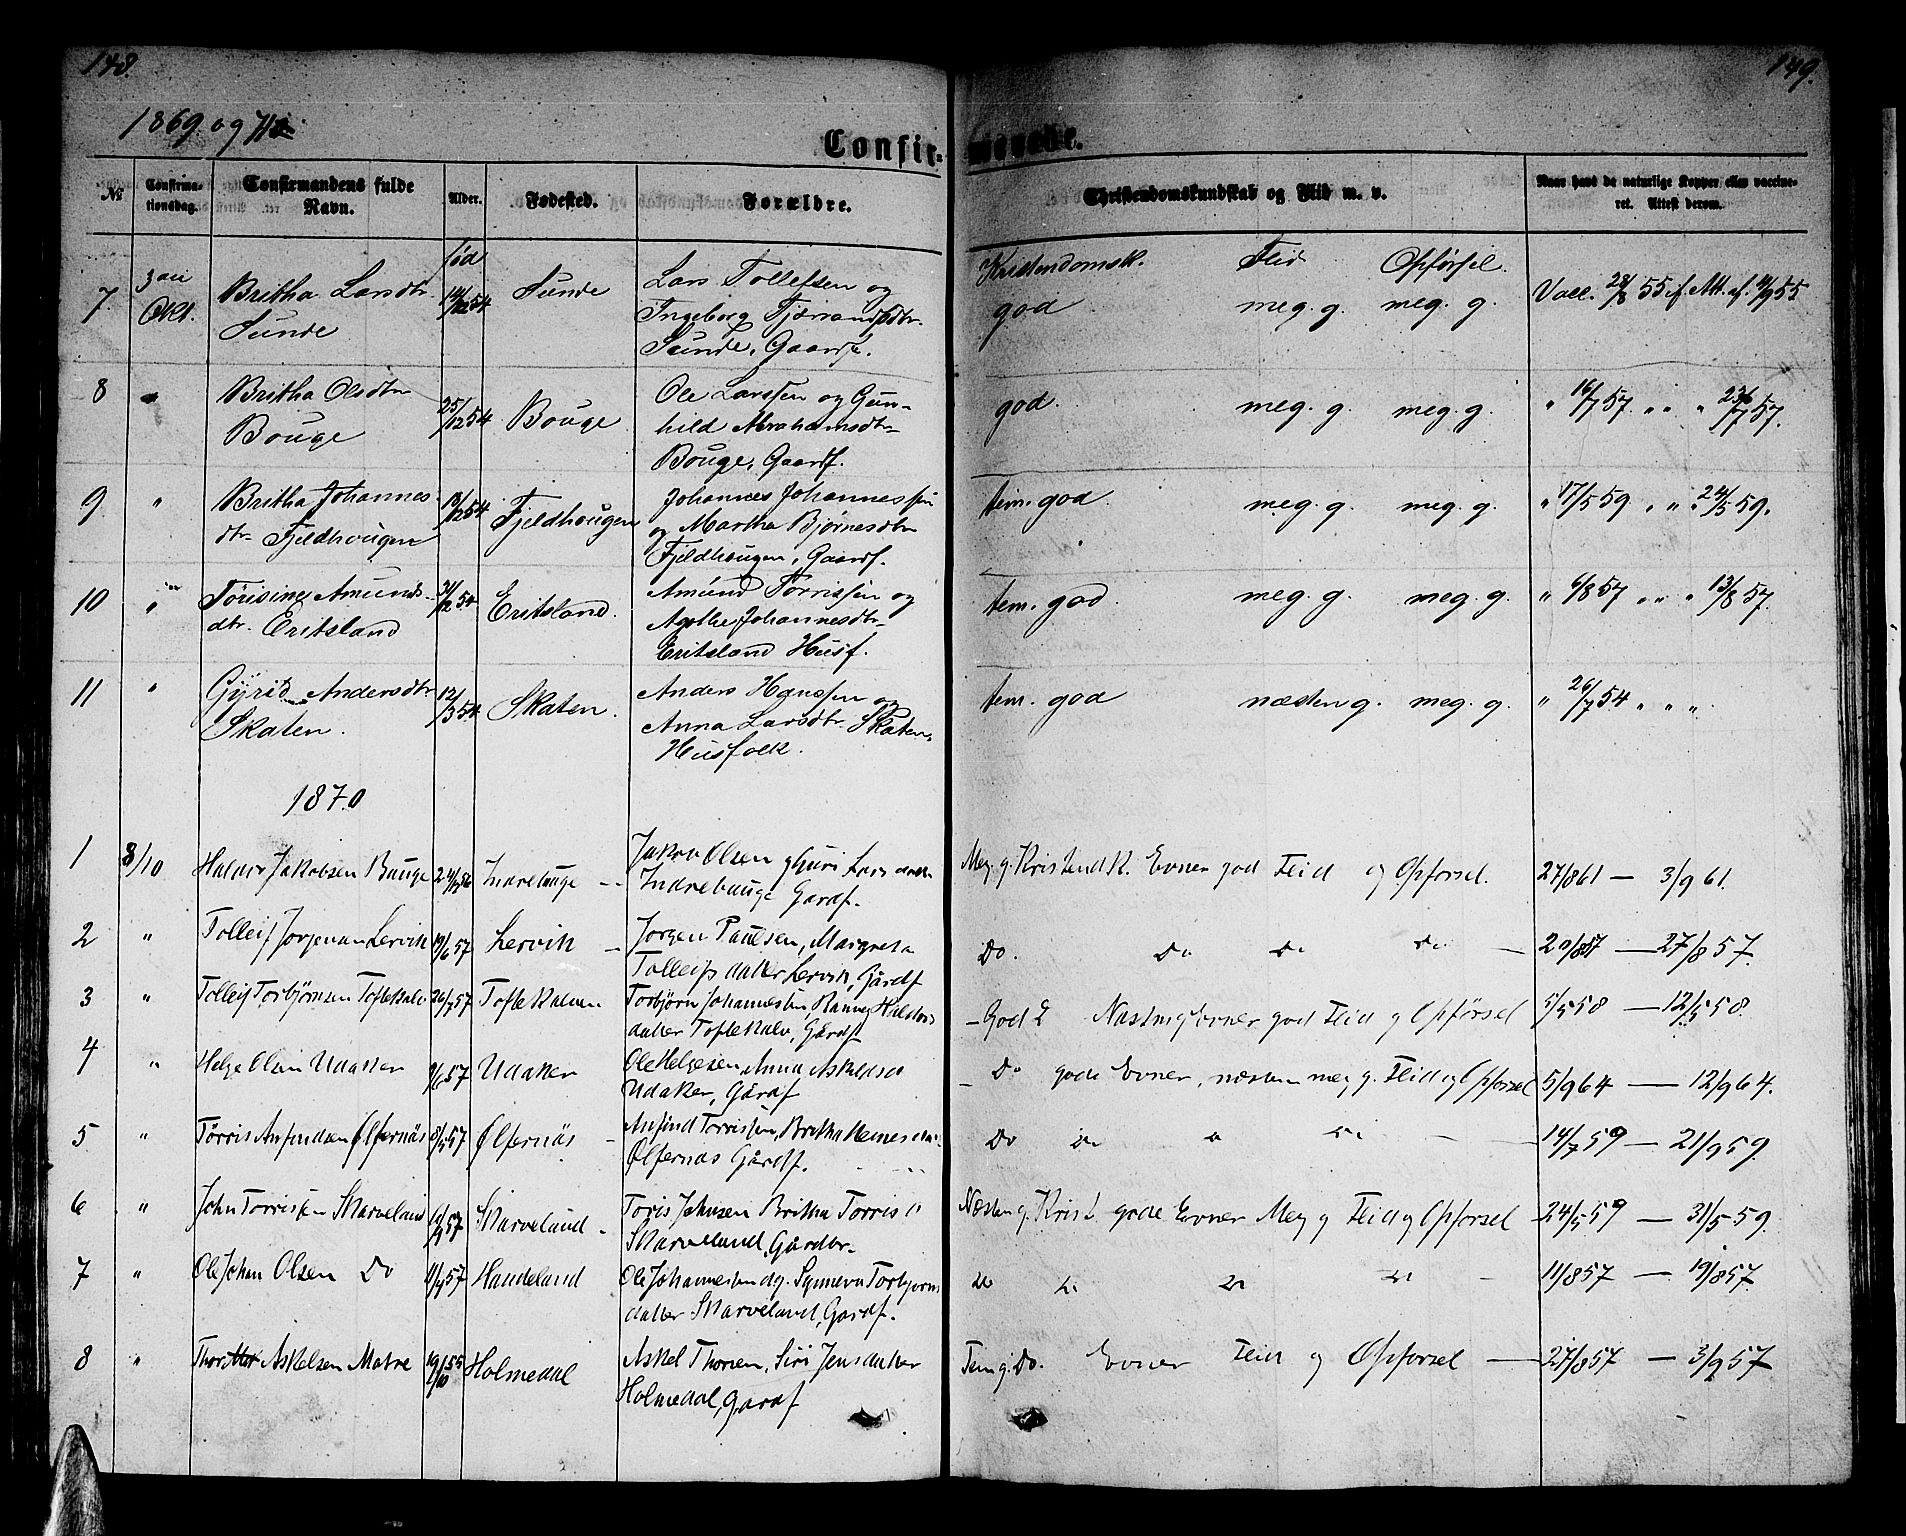 148.
149.
1869. og 70
Confir-
merede.
№
Confirma-
tionsdag.
Confirmandens fulde
Navn.
Alder.
Fødested.
Forældre.
Christendomskundskab og Flid m. v.
Naar havt de naturlige Kopper eller vaccine-
ret. Attest derom.
7. 3die Okt. Britha Larsdtr. Sunde
fød 14/12 54 Sunde
Lars Tollefsen og
Ingeborg Tjærandsdtr.
Sunde, Gaardf.
Kristendomsk. Flid Opførsel.
god meg. g. meg. g.
Vacc. 28/8 55 if. Att. af. 4/9 55
8 Britha Olsdtr
Bouge
25/12 54 Bouge
Ole Larssen og Gun-
hild Abrahamsdtr
Bouge, Gaardf.
god. meg. g. meg. g.
" 16/7 57. " " " 23/7 57.
9 " Britha Johannes-
dtr Fjeldhougen
19/12 54 Fjeldhougen
Johannes Johannessen
og Martha Bjørnesdtr
Fjeldhougen, Gaardf.
tem. god meg. g. meg. g.
" 17/5 59 " " " 24/5 59.
10 " Torisine Amunds-
dtr. Eritsland
31/12 54 Eritsland.
Amund Torrissen og
Agathe Johannesdtr
Eritsland Husf.
tem. god meg. g. meg. g.
" 6/8 57 " " " 13/8 57.
11 " Gyrid Andersdtr
Skaten.
12/3 54 Skaten.
Anders Hanssen og
Anna Larsdtr. Skaten,
Husfolk.
tem. god næsten g. meg. g.
" 26/7 54 " " ".
1870
1 8/10 Halvor Jakobsen Bauge Indrebauge
Jakob Olsen g Guri Larsdatter
Indrebauge Gardf.
Meg. g. Kristendk. Evner god Flid og Opførsel. 27/8 61 — 3/9 61.
2 " Tolleif Jørgensen Lervik 19/6 57 Lervik
Jørgen Paulsen, Margreta
Tolleifsdatter Lervik, Gårdf
Do. Do Do Do — 27/8 57.
3 " Tolleif Torbjørnsen Toftekalv 26/7 57 Toftekalven
Torbjørn Johannessen, Ranveg Haldors
datter Toftekalv, Gårdf
God K Næsten g Evner god Flid g Opførsel 5/5 58 — 12/5 58.
4 " Helge Olsen Udaker 57 Udaker
Ole Helgesen, Anna Askelsd
Udaker, Gårdf
Do gode Evner, næsten meg g. Flid og Opførsel 5/9 64 — 12/9 64.
5 " Tørris Anfindsen Ølfernäs 8/5 57 Ølfernäs
Anfind Torrissen, Britha
Ølfernas Gårdf.
Do Do Do 14/7 59 — 21/9 59.
6 " John Torrissen Skarveland 57 Skarveland
Toris Johnsen Britha Torrisd
Skarveland, Gårdbr.
Næsten g. Krist. gode Evner Meg g Flid og Opførsel 24/5 59 — 31/5 59.
7 " Ole Johan Olsen Do 57 Handeland
Ole Johannessen og. Synneva Torbjørns
datter Skarveland, Gardf.
Do Do Do Do 11/8 57 — 19/8 57.
8 " Thor Askelsen Matre 19/10 55 Holmedal
Askel Thorsen, Siri Jensdatter
Holmedal, Gardf
Tem g. Do. Evner Flid og Opførsel — 27/8 57 — 3/9 57